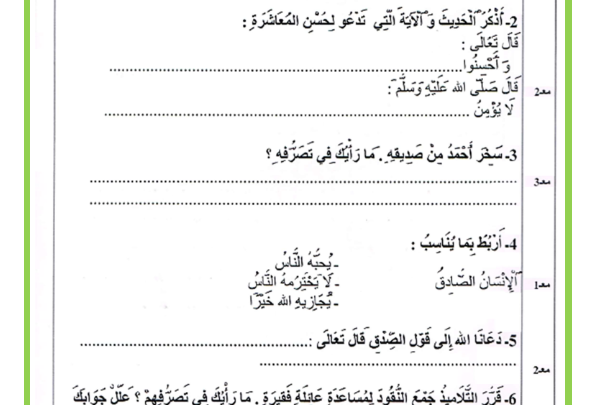 2- أَذْكُرُ الْحَدِيثَ وَ الْآيَةَ الَّتِي تَدْعُو لِحُسْنِ المُعَاشَرَةِ :
قَالَ تَعَالَى :
وَ أَحْسِنُوا ..........................................................................
قَالَ صَلَّى الله عَلَيْهِ وَسَلَّمَ :
مع2
لَا يُؤْمِنُ ..........................................................................
3- سَخَرَ أَحْمَدُ مِنْ صَدِيقِهِ . مَا رَأْيُكَ فِي تَصَرُّفِهِ ؟
مع3
..........................................................................
..........................................................................
4- أَرْبُطُ بِمَا يُنَاسِبُ :
- يُحِبُّهُ النَّاسُ
مع1 اَلْإِنْسَانُ الصَّادِقُ - لَا يَحْتَرِمُهُ النَّاسُ
- يُجَازِيهِ الله خَيْرًا
5- دَعَانَا الله إِلَى قَوْلِ الصِّدْقِ قَالَ تَعَالَى : ..................................................
مع2
..........................................................................
6- قَرَّرَ التَّلَامِيذُ جَمْعَ النُّقُودَ لِمُسَاعَدَةِ عَائِلَةٍ فَقِيرَةٍ . مَا رَأْيُكَ فِي تَصَرُّفِهِمْ ؟ عَلِّلْ جَوَابَكَ